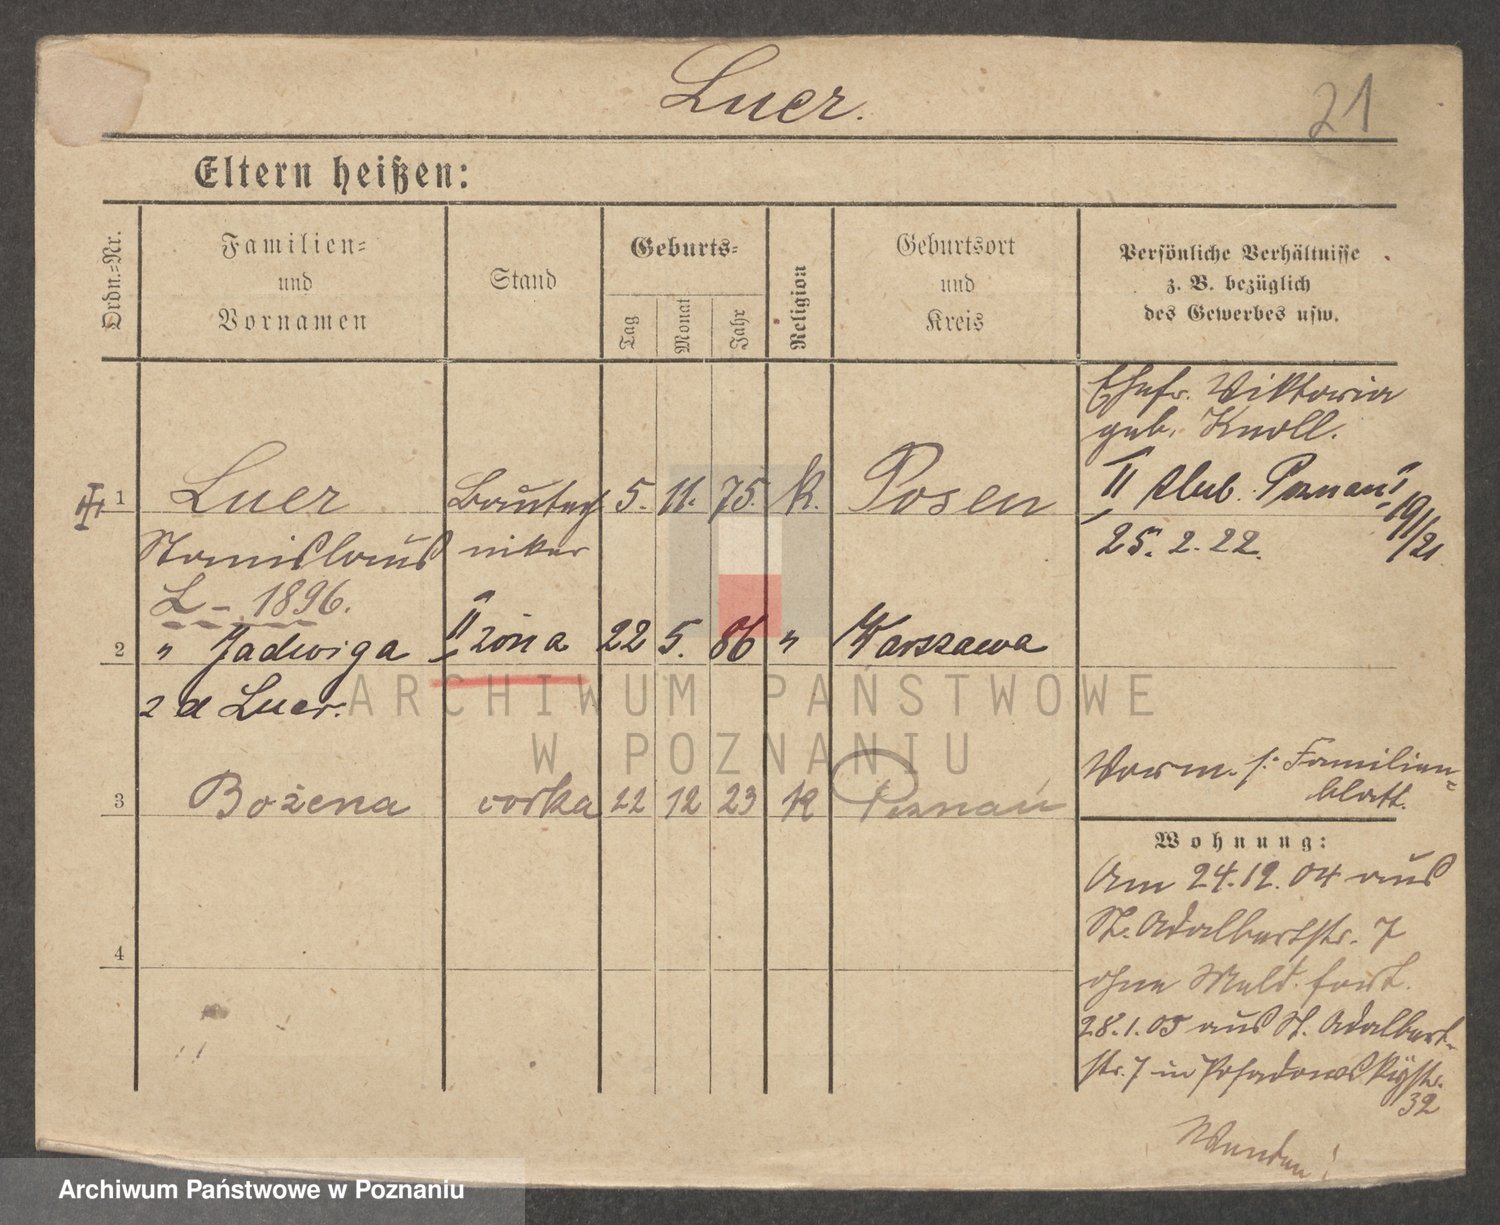 Luer.
21
Eltern heißen:
Ordn.=Nr.
Familien=
und
Vornamen
Stand
Geburts=
Tag
Monat
Jahr
Religion
Geburtsort
und
Kreis
Persönliche Verhältnisse
z. B. bezüglich
des Gewerbes usw.
Ehefr. Viktoria
geb. Knoll.
1 Luer Bautech 5. 11. 75. k. Posen II ślub. Poznań 19/1/21
Stanislaus niker 25. 2. 22.
L - 1896.
2 " Jadwiga II żona 22 5. 86 " Warszawa
2 d Luer.
3 Bożena córka 22 12 23 k Poznań
Vorm. s. Familien-
blatt.
Wohnung:
Am 24.12.04 aus
St. Adalbertstr. 7
ohne Meld. fort.
28.1.05 aus St. Adalbert-
str. 7 in Posadowskystr.
32
4
Wenden!
ARCHIWUM PAŃSTWOWE
W POZNANIU
Archiwum Państwowe w Poznaniu